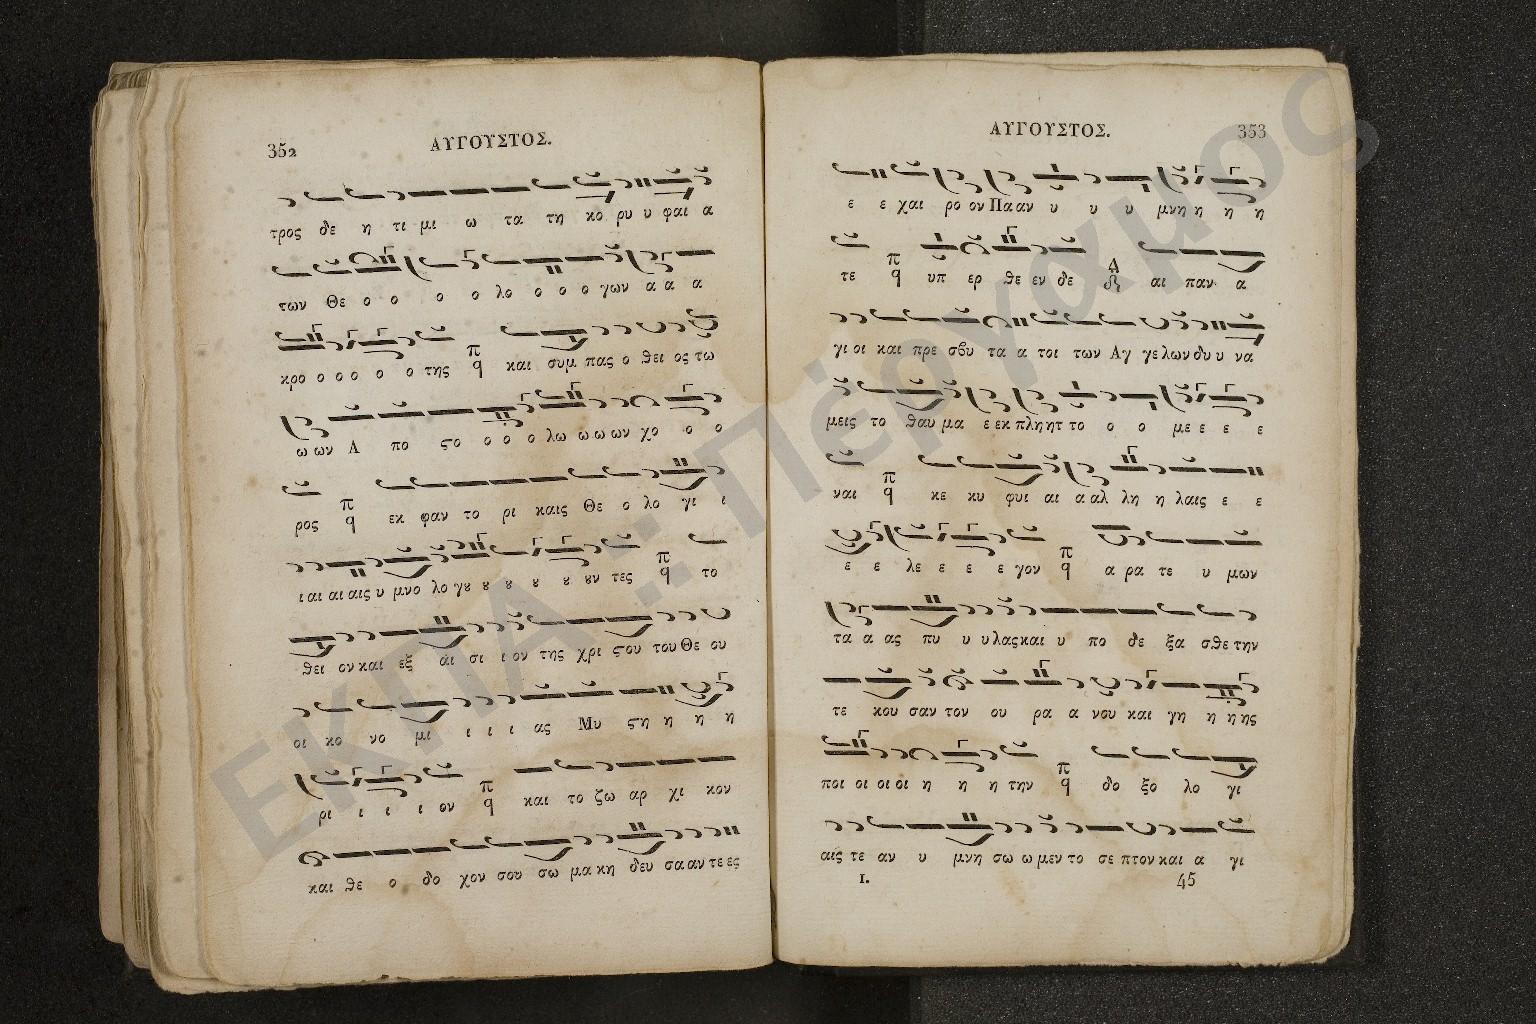 352
ΑΥΓΟΥΣΤΟΣ.
τρος δε η τι μι ω τα τη κο ρυ υ φαι α
των Θε ο ο ο ο λο ο ο ο γων α α α
κρο ο ο ο ο ο της π q και συμ πας ο θει ος τω
ω ων Α πο ϛο ο ο ο λω ω ω ων χο ο ο
ρος π q εκ φαν το ρι καις Θε ο λο γι ι
ι αι αι αις υ μνο λο γȣ ȣ ȣ ȣ ȣ ȣν τες π q το
θει ον και εξ αι σι ι ον της χρι ϛου του Θε ου
οι κο νο μι ι ι ι ας Μυ ϛη η η η
ρι ι ι ι ον π q και το ζω αρ χι κον
και θε ο δο χον σου σω μα κη δευ σα αν τε ες
ΑΥΓΟΥΣΤΟΣ.
353
ε ε χαι ρο ον Πα αν υ υ υ μνη η η η
τε π q υπ ερ θε εν δε αι παν α
γι οι και πρε σβυ τα α τοι των Αγ γε λων δυ υ να
μεις το θαυ μα ε εκ πλη ητ το ο ο με ε ε ε
ναι π q κε κυ φυι αι α αλ λη η λαις ε ε
ε ε λε ε ε ε γον π q α ρα τε υ μων
τα α ας πυ υ υ λας και υ πο δε ξα σθε την
τε κου σαν τον ου ρα α νου και γη η η ης
ποι οι οι οι η η η την π q δο ξο λο γι
αις τε αν υ μνη σω ω μεν το σε πτον και α γι
I.
45
ΕΚΠΑ :: Πέργαμος